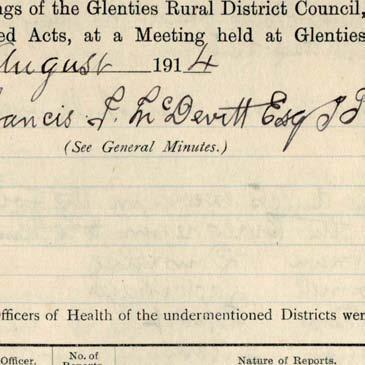 ngs of the Glenties Rural District Council,
ed Acts, at a Meeting held at Glenties
August 1914
ancis J. McDevitt Esq J P
(See General Minutes.)
fficers of Health of the undermentioned Districts wer
Officer. No. of Reports. Nature of Reports.